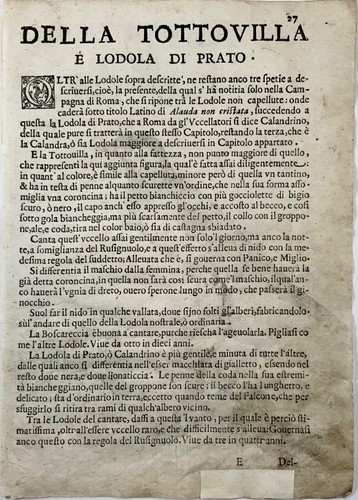 27
DELLA TOTTOVILLA
E LODOLA DI PRATO.
OLTR' alle Lodole sopra descritte, ne restano anco tre spetie a de-
scriuersi, cioè, la presente, della qual s'hà notitia solo nella Cam-
pagna di Roma, che si ripone trà le Lodole non capellute: onde
caderà sotto titolo Latino di Alauda non cristata, succedendo a
questa la Lodola di Prato, che a Roma da gl'Vccellatori si dice Calandrino,
della quale pure si tratterà in questo stesso Capitolo, restando la terza, che è la
Calandra, ò sia Lodola maggiore a descriuersi in Capitolo appartato.
E la Tottouilla, in quanto alla fattezza, non punto maggiore di quello,
che rappresenta la qui aggiunta figura, la qual'è fatta assai diligentemente.
in quant'al colore, è simile alla capelluta, minore però di quella vn tantino,
& hà in testa di penne alquanto scurette vn'ordine, che nella sua forma asso-
miglia vna coroncina; hà il petto bianchiccio con più gocciolette di bigio
scuro, ò nero, il capo anch'esso appresso gl'occhi, è accosto al becco, e così
sotto gola biancheggia, mà più scarsamente del petto, il collo con il groppo-
ne, ale, e coda, tira nel color baio, ò sia di castagna sbiadato.
Canta quest'vccello assai gentilmente non solo'l giorno, ma anco la not-
te, a somiglianza del Rusignuolo, e a quest'effetto s'alleua di nido con la me-
desima regola del suddetto; Alleuata che è, si gouerna con Panico, e Miglio.
Si differentia il maschio dalla femmina, perche quella se bene hauerà la
già detta coroncina, in quella non sarà così scura come'l maschio, il qual'an-
no hauerà l'vgnia di dreto, ouero sperone lungo in modo, che passerà il gi-
nocchio.
Suol far il nido in qualche vallata, doue sijno folti gl'alberi, fabricandolo
sù l'andare di quello della Lodola nostrale, ò ordinaria.
La Boscareccia è buona a cantare, purche riesca l'ageuolarla. Pigliasi co
me l'altre Lodole. Viue da otto in dieci anni.
La Lodola di Prato, ò Calandrino è più gentile, e minuta di tutte l'altre,
dalle quali anco si differentia nell'esser macchiata di gialletto, essendo nel
resto doue nera, e doue lionaticcia. Le penne della coda nella sua estremi-
tà biancheggiano, quelle del groppone son scure; il becco l'ha lunghetto, e
delicato; stà d'ordinario in terra, eccetto quando teme del Falcone, che per
sfuggirlo si ritira trà rami di qualch'albero vicino.
Trà le Lodole del cantare, dassi a questa'l vanto, per il quale è perciò sti-
matissima, oltr'all'essere vccello raro, e che difficilmente s'alleua: Gouernasi
anco questo con la regola del Rusignuolo. Viue da tre in quattr'anni.
E Del-